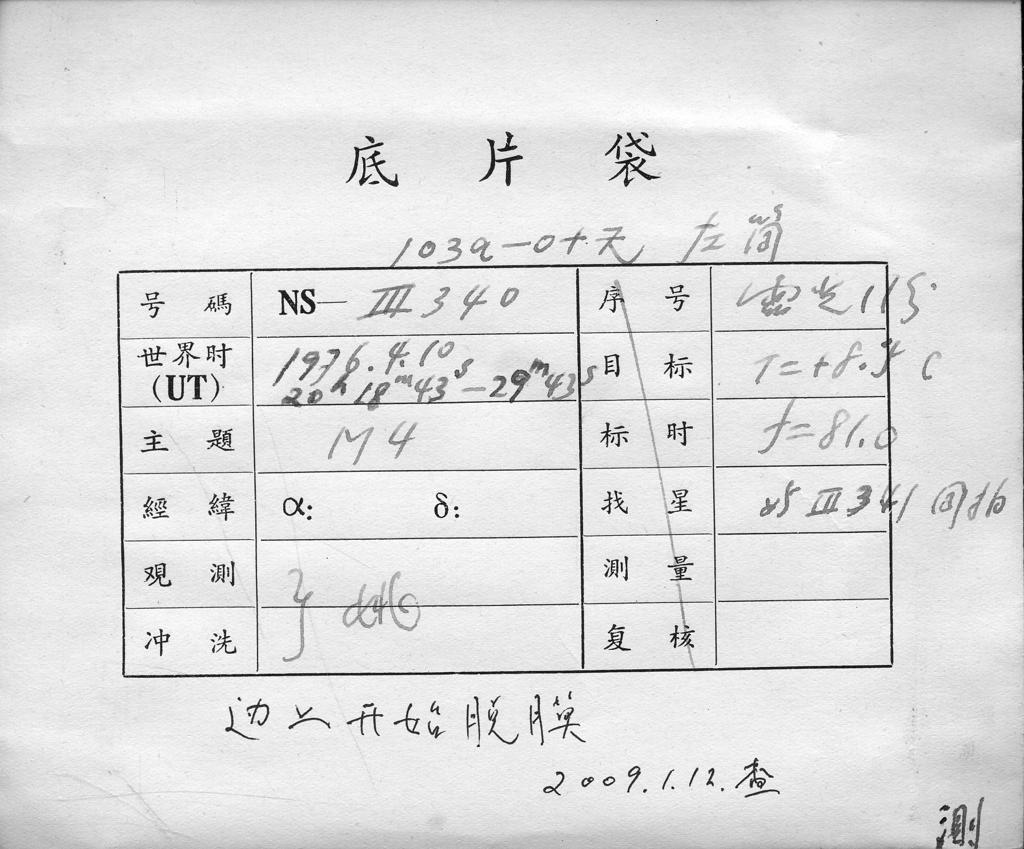 底片袋
103a-0+天 左筒
号碼 NS—III 340 序号 露光11分
世界时(UT) 1976.4.10 目标 T=+8.5°C
20h 18m 43s—29m 43s
主題 M4 标时 f=81.0
經緯 α: δ: 找星 III 341 同拍
观測 測量
冲洗 复核
边上开始脱膜
2009.1.12.查
測